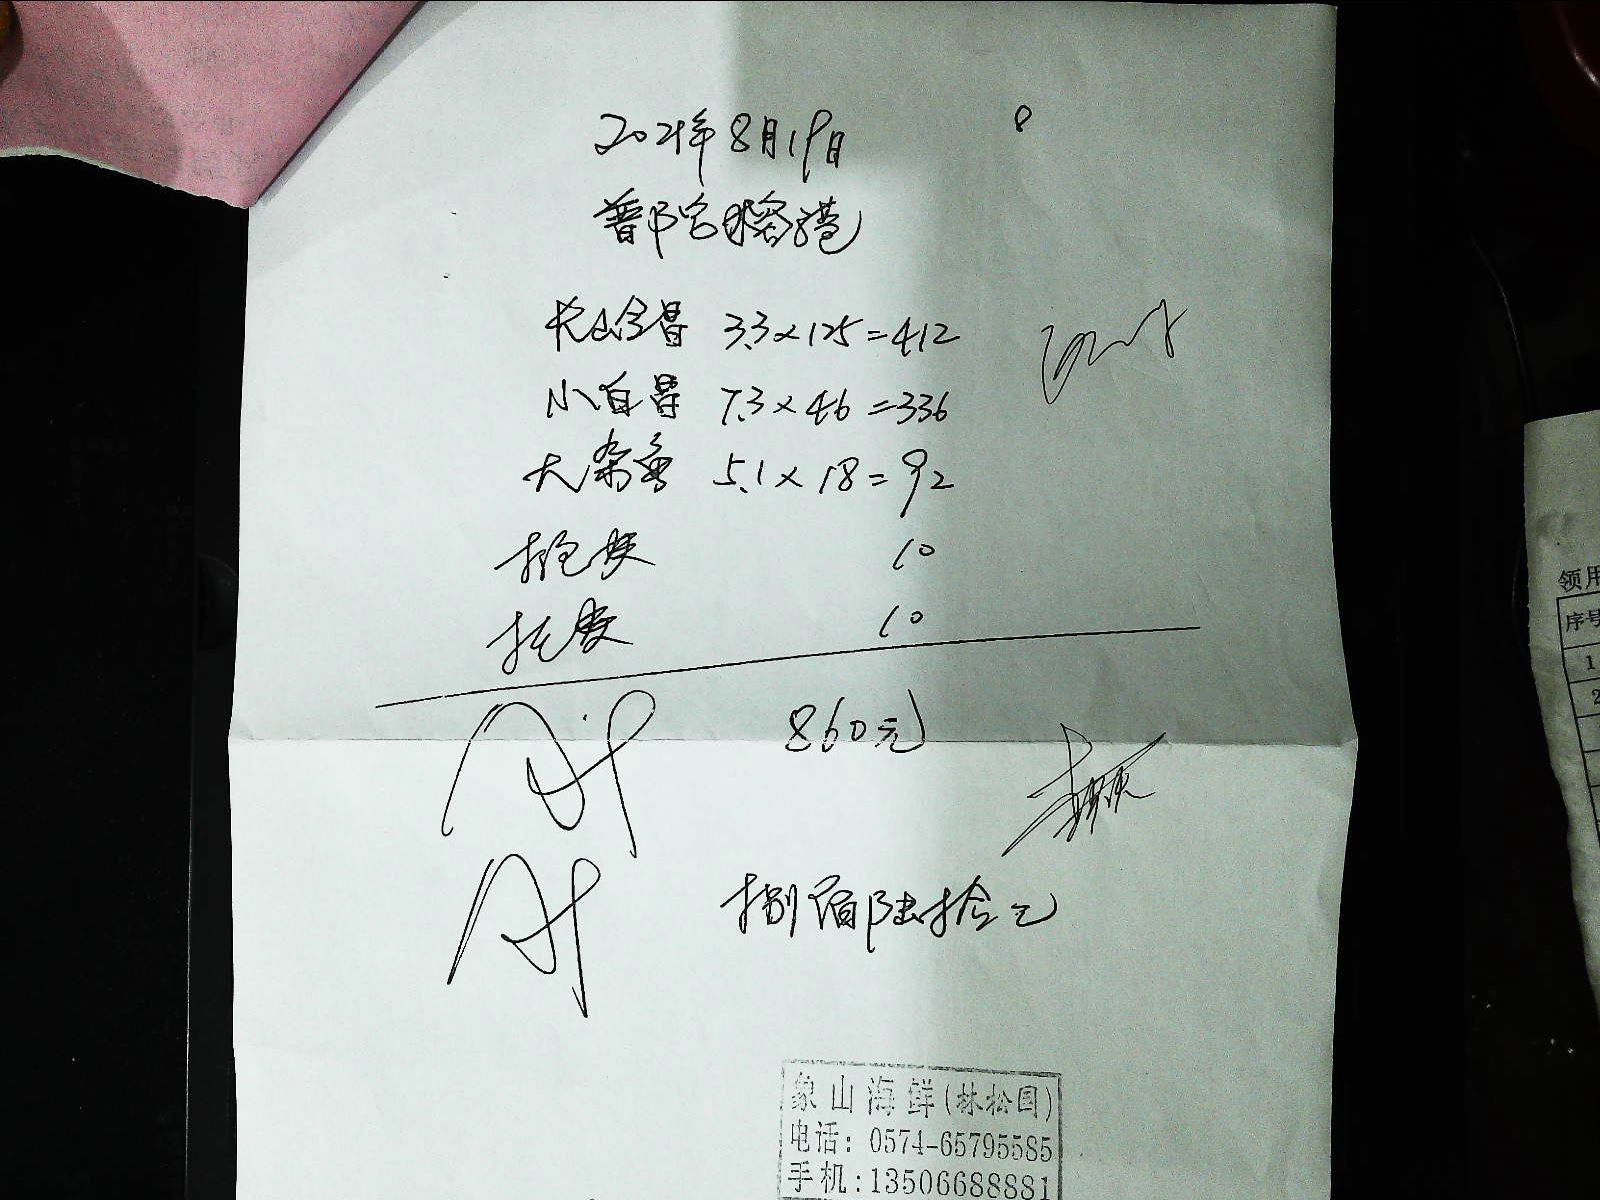 2021年8月19日
8
普陀
3.3×125=412
小白昌 7.3×46=336
大杂鱼 5.1×18=92
10
托费 10
860元
捌佰陆拾元
象山海鲜(林松国)
电话: 0574-65795585
手机:13506688881
领用
序号
1
2